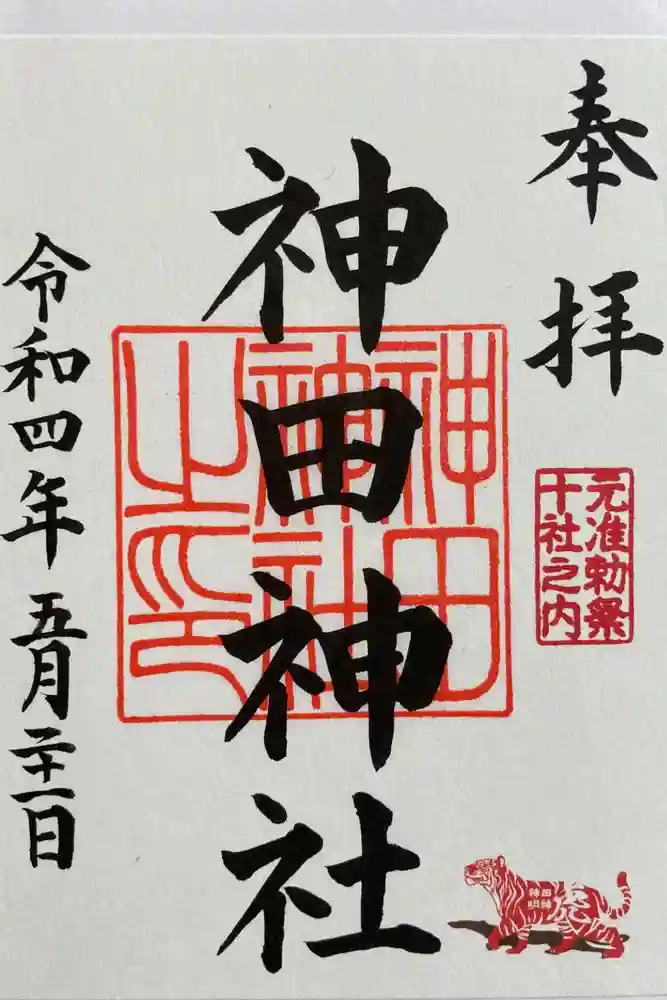 奉拝
元准勅祭
十社之内
神田神社
神田
神社
之印
令和四年五月二十一日
神田
明神